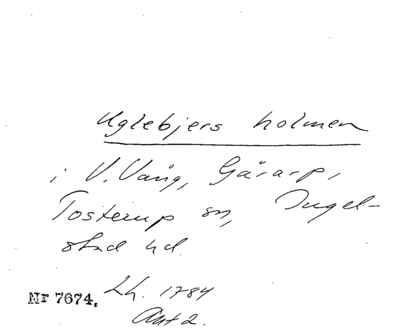 Uglebjers holmen
i V. Vång, Gårarp,
Tosterup sn, Ingel-
stad hd.
Nr 7674. Lh. 1784
Akt 2.